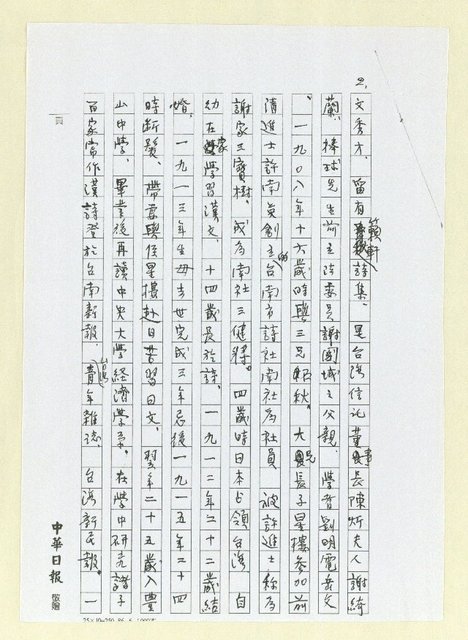 2.
文秀才，留有籟軒詩集。是台灣信託董事長陳炘夫人謝綺
蘭、棒球先生前立法委員謝國城之父親。學者劉明電岳父
。一九〇八年十六歲時與三兄紹秋，大兄長子星樓參加前
清進士許南英創立的台南市詩社南社為社員 被許進士稱為
謝家三寶樹。成為南社三健將。四歲時日本占領台灣 自
幼在家學習漢文。十四歲長於詩。一九一二年二十二歲結
婚。一九一三年生母去世完成三年忌後一九一五年二十四
時斷髮。帶妻與侄星樓赴日本習日文。翌年二十五歲入豐
山中學。畢業後再讀中央大學経濟學系。在學中研究諸子
百家常作漢詩登於台南新報、台灣青年雜誌、台灣新民報。一
頁
中華日報